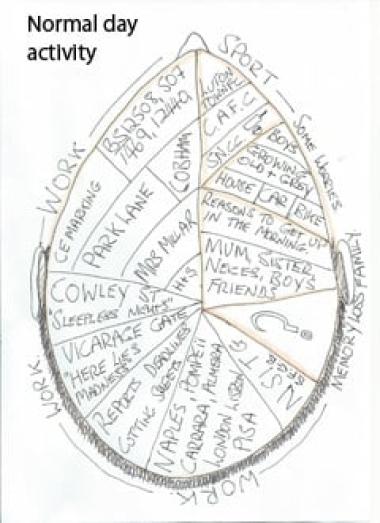 Normal day
activity
SPORT
WORK
SOME WORRIES
FAMILY
MEMORY LOSS
WORK
WORK
BS12508, 507
1469, 12440
LUTON
TUNNEL
C.A.F.C
BOYS
GROWING
OLD + GREY
HOUSE CAR BIKE
REASONS TO GET UP
IN THE MORNING
MUM, SISTER,
NEICES, BOYS
FRIENDS
?
CE MARKING
PARK LANE
COBHAM
MRS MILLAR
H+S
COWLEY ST
"SLEEPLESS NIGHTS"
VICARAGE GATE
"HERE LIES
MADNESS"
REPORTS DEADLINES
CUTTING SHEETS
NAPLES, POMPEII
CARRARA, 
LONDON LISBON
PISA